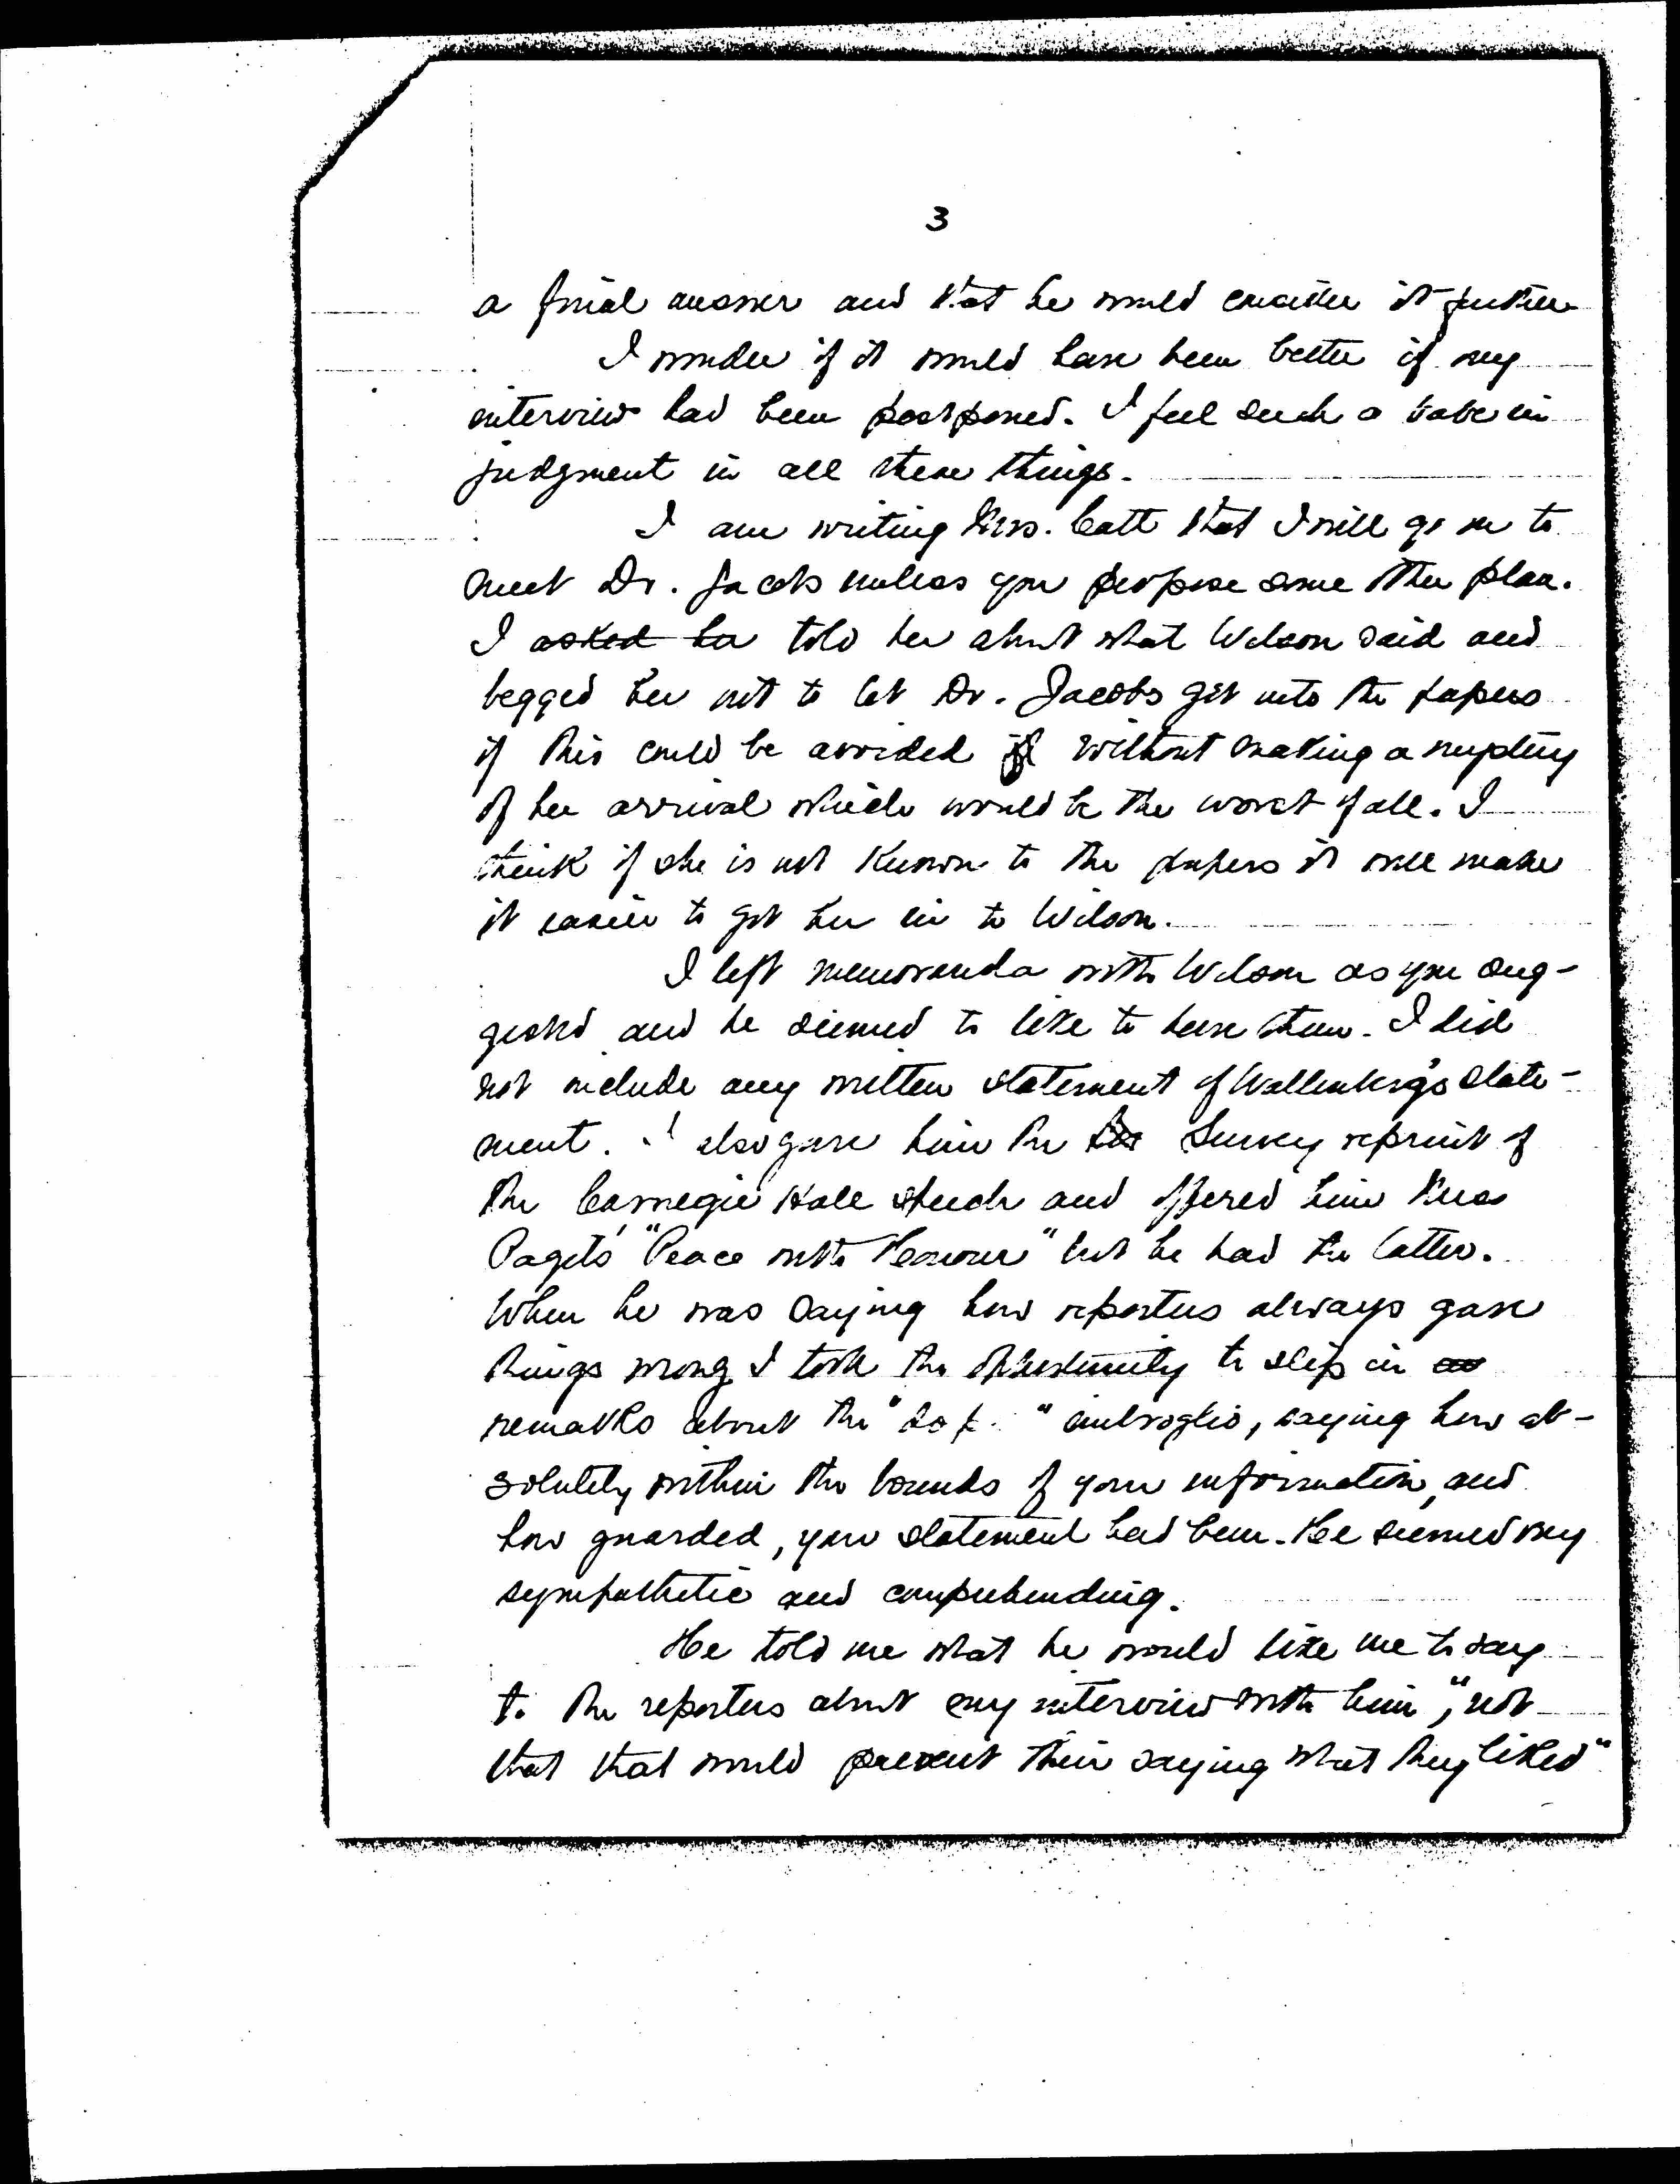 3
a final answer and that he would consider it further
I wonder if it would have been better if my
interview had been postponed. I feel such a babe in
judgment in all these things.
I am writing Mrs. Catt that I will go on to
meet Dr. Jacobs unless you propose some other plan.
I asked her told her about what Wilson said and
begged her not to let Dr. Jacobs get into the papers
if this could be avoided without making a mystery
of her arrival which would be the worst of all. I
think if she is not known to the papers it will make
it easier to get her in to Wilson.
I left memoranda with Wilson as you sug-
gested and he seemed to like to have them. I did
not include any written statement of Wallenberg's state-
ment. I also gave him the Survey reprint of
the Carnegie Hall speech and offered him Miss
Pagets "Peace with Honour" but he had the latter.
When he was saying how reporters always gave
things wrong I took the opportunity to slip in
remarks about the " " imbroglio, saying how ab-
solutely within the bounds of your information, and
how guarded, your statement had been. He seemed very
sympathetic and comprehending.
He told me what he would like me to say
to the reporters about my interview with him, "not
that that would prevent their saying what they liked"